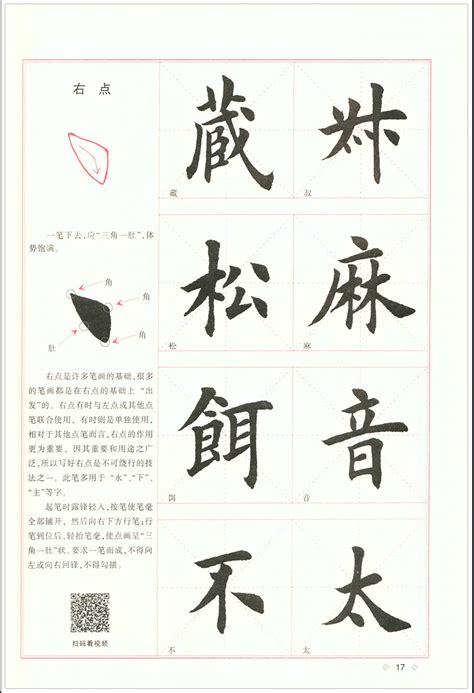 右 点
一笔下去,应“三角一肚”,体
势饱满。
角
角
角
肚
右点是许多笔画的基础,很多
的笔画都是在右点的基础上“出
发”的。右点有时与左点或其他点
笔联合使用,有时则是单独使用,
相对于其他点笔而言,右点的作用
更为重要。因其重要和用途之广
泛,所以写好右点是不可绕行的技
法之一。此笔多用于“水”、“下”、
“主”等字。
起笔时露锋轻入,按笔使笔毫
全部铺开,然后向右下方行笔;行
笔到位后,轻抬笔毫,使点画呈“三
角一肚”状。要求一笔而成,不得向
左或向右回锋,不得勾描。
扫码看视频
藏 叔
藏 叔
松 麻
松 麻
餌 音
饵 音
不 太
不 太
17